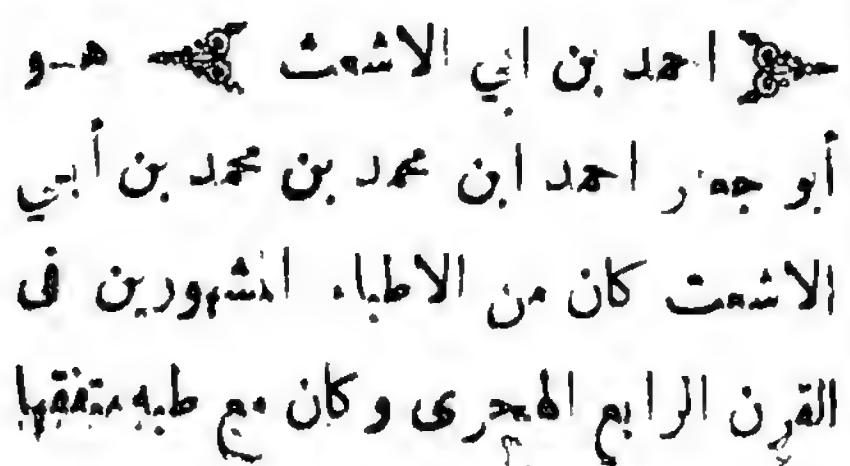 احمد بن ابي الاشعث هو
أبو جعفر احمد ابن محمد بن محمد بن أبي
الاشعث كان من الاطباء المشهورين فى
القرن الرابع الهجرى وكان مع طبه متفقها